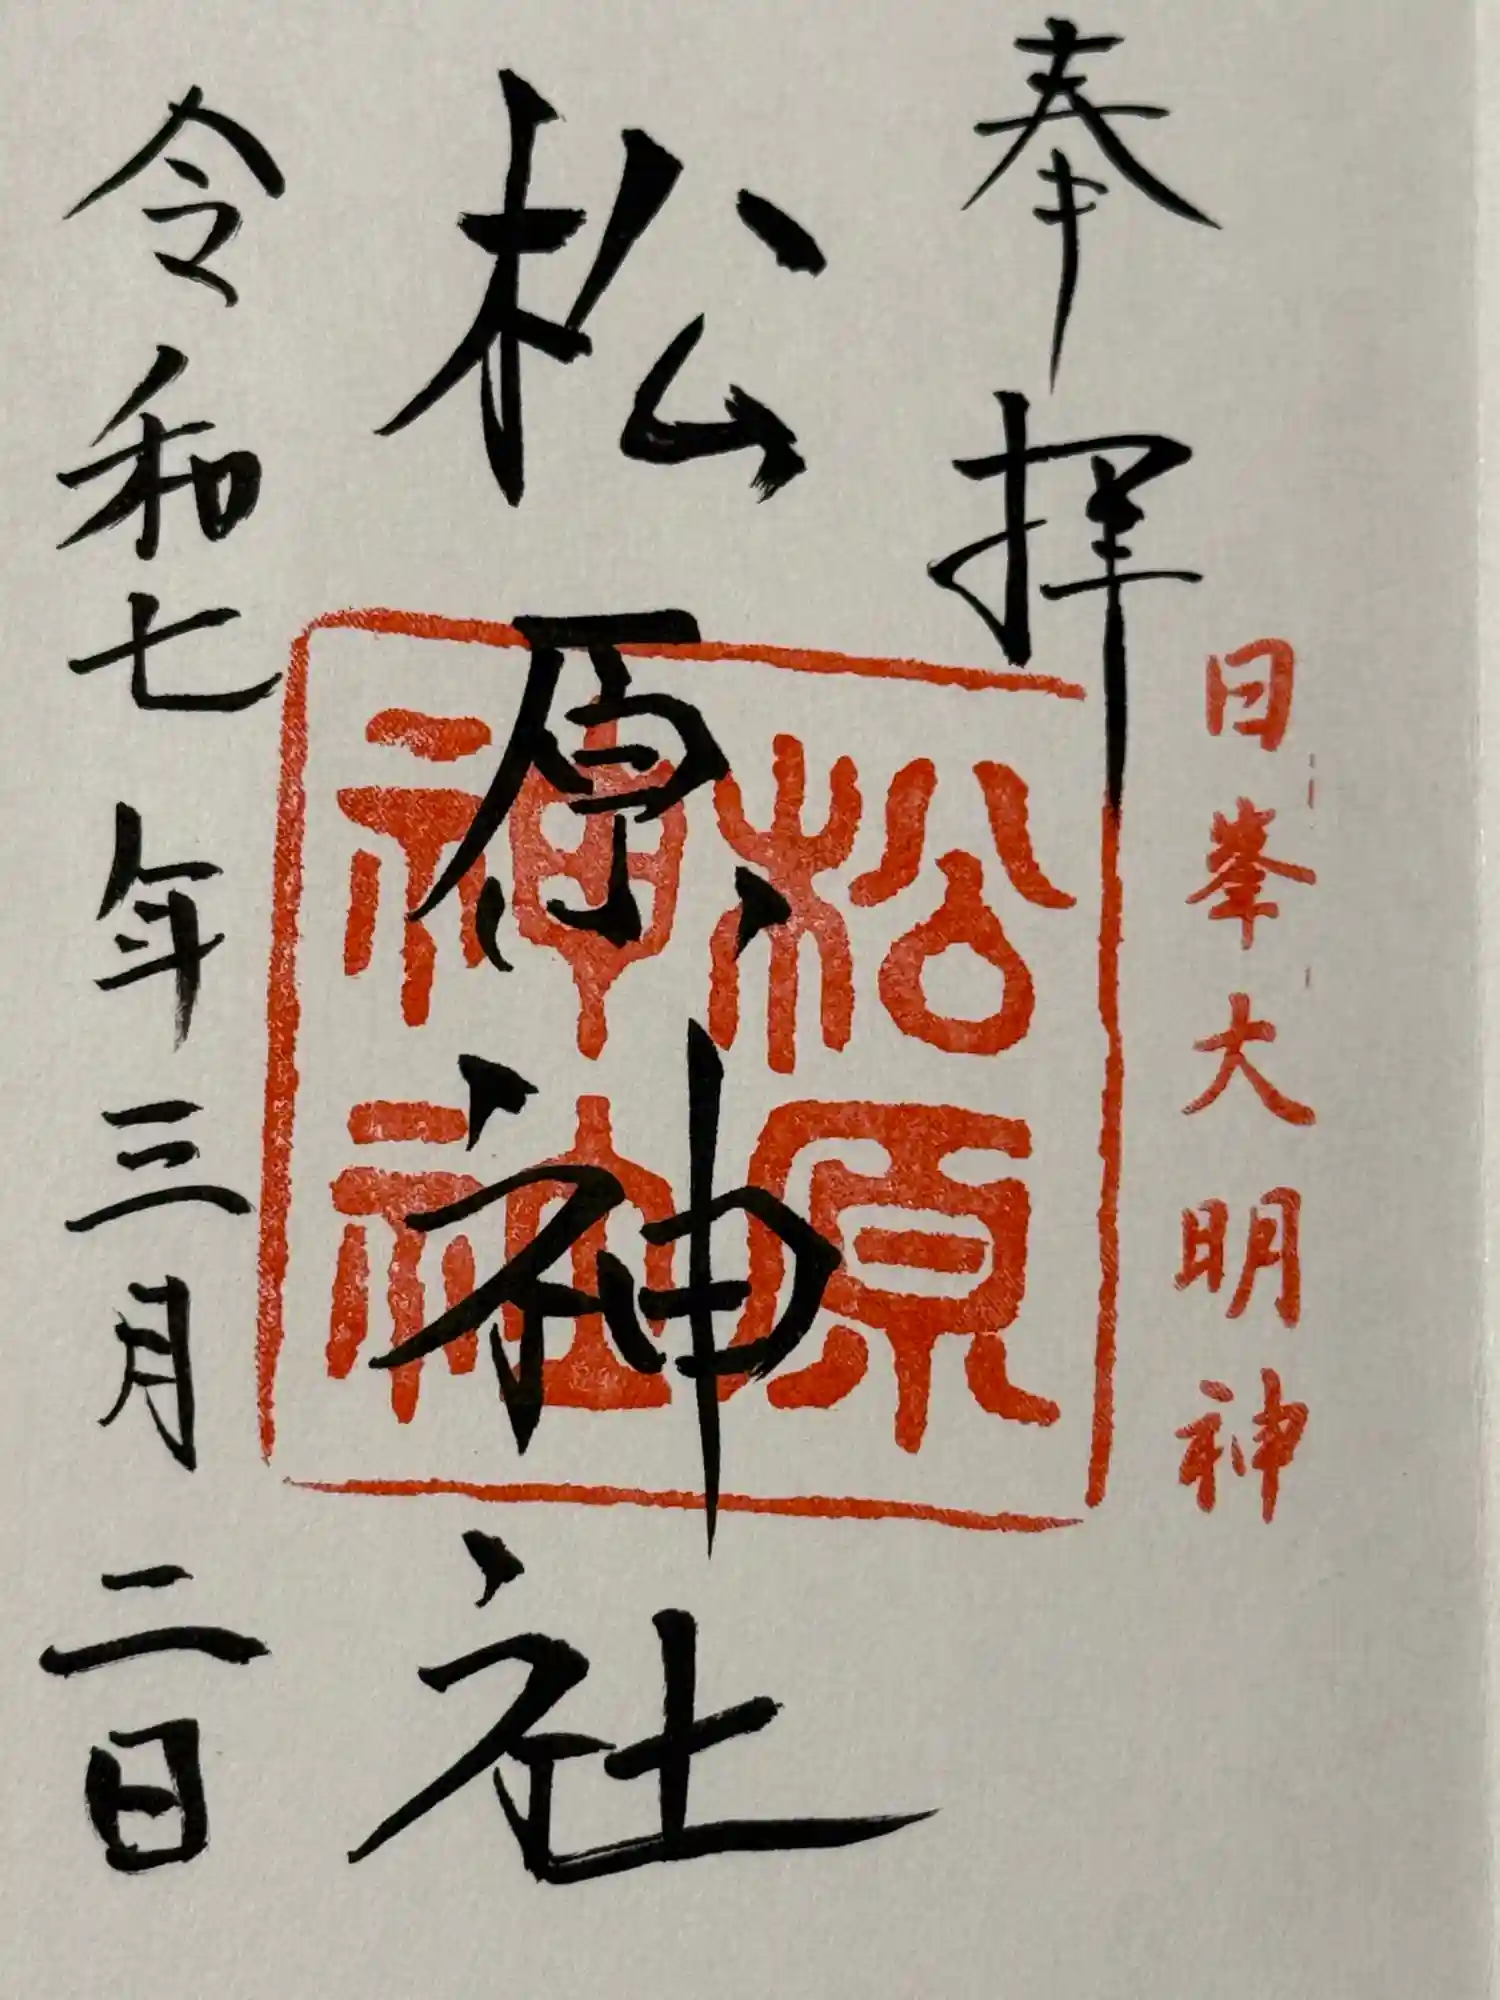 奉拝
日峯大明神
松原神社
松原
神社
令和七年三月二日